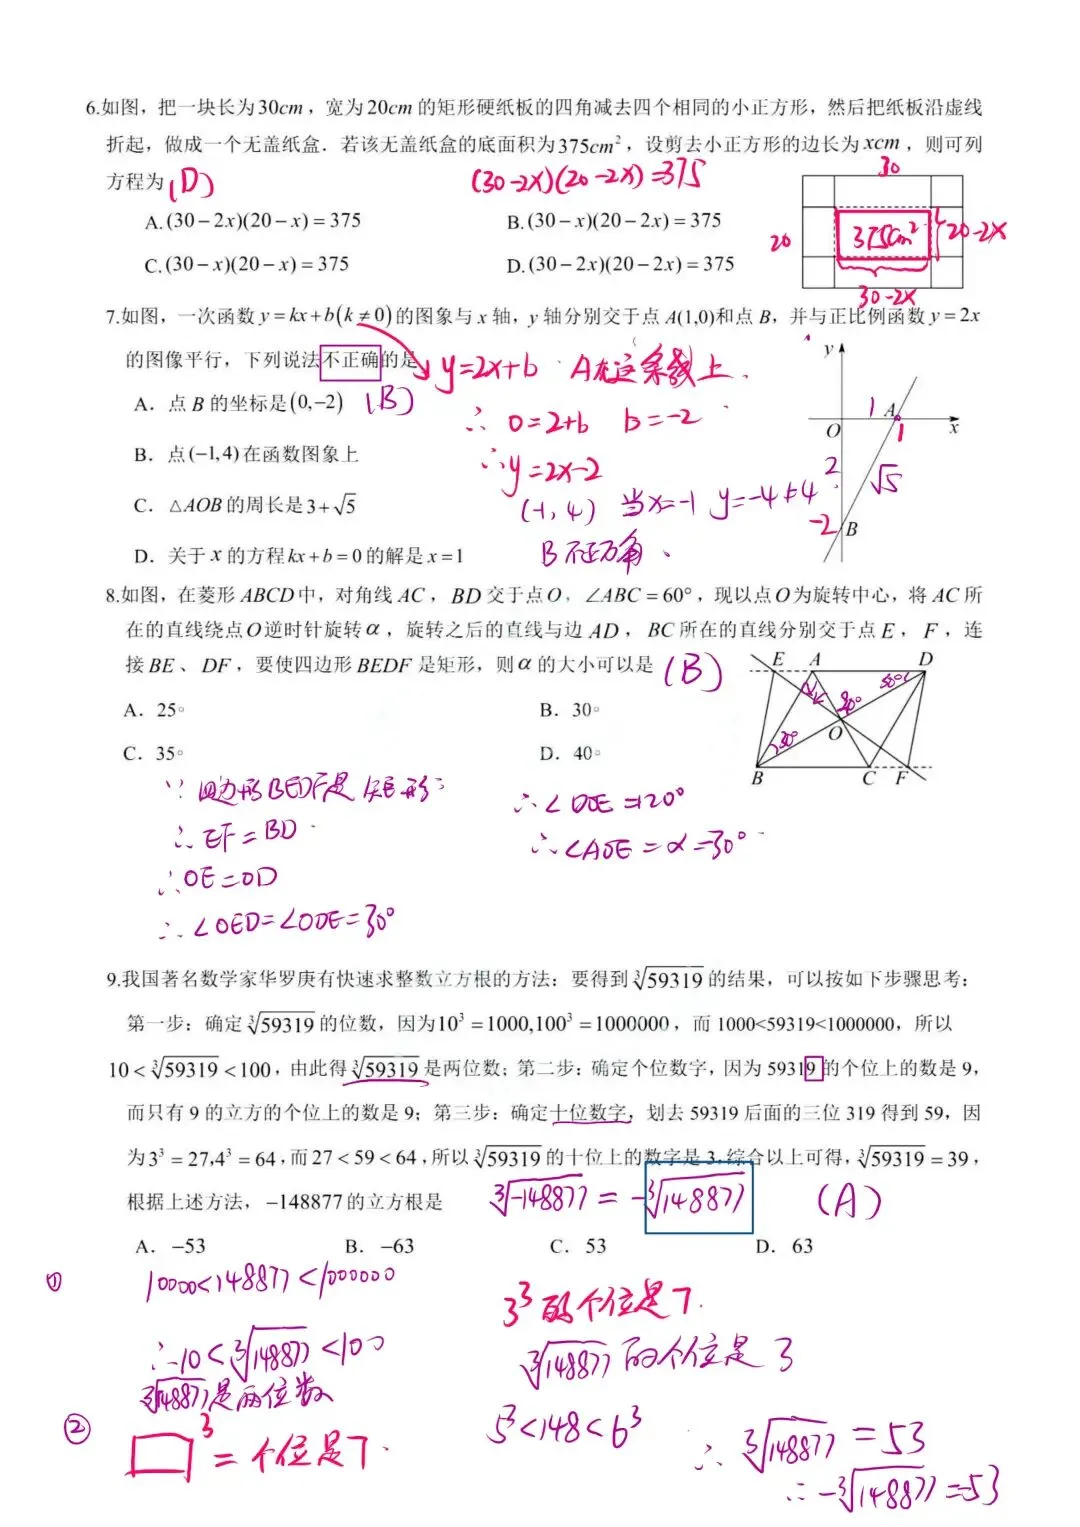 6.如图，把一块长为30cm，宽为20cm的矩形硬纸板的四角减去四个相同的小正方形，然后把纸板沿虚线
折起，做成一个无盖纸盒．若该无盖纸盒的底面积为375cm²，设剪去小正方形的边长为xcm，则可列
方程为 (D) (30-2x)(20-2x)=375
30
A.(30−2x)(20−x)=375 B.(30−x)(20−2x)=375
20 375cm² 20-2x
C.(30−x)(20−x)=375 D.(30−2x)(20−2x)=375
30-2x
7.如图，一次函数y=kx+b(k≠0)的图象与x轴，y轴分别交于点A(1,0)和点B，并与正比例函数y=2x
的图像平行，下列说法不正确的是 y=2x+b A在这条线上
A．点B的坐标是(0,−2) (B) ∴0=2+b b=-2
B．点(−1,4)在函数图象上 ∴y=2x-2
C．△AOB的周长是3+√5 (-1,4) 当x=-1 y=-4≠4
D．关于x的方程kx+b=0的解是x=1 B不正确
y
1 A
O 1 x
2 √5
-2 B
8.如图，在菱形ABCD中，对角线AC，BD交于点O，∠ABC=60°，现以点O为旋转中心，将AC所
在的直线绕点O逆时针旋转α，旋转之后的直线与边AD，BC所在的直线分别交于点E，F，连
接BE、DF，要使四边形BEDF是矩形，则α的大小可以是 (B)
A．25° B．30°
C．35° D．40°
E A D
O
30°
B C F
∵四边形BEDF是矩形
∴EF=BD
∴OE=OD
∴∠OED=∠ODE=30°
∴∠DOE=120°
∴∠AOE=α=30°
9.我国著名数学家华罗庚有快速求整数立方根的方法：要得到∛59319的结果，可以按如下步骤思考：
第一步：确定∛59319的位数，因为10³=1000,100³=1000000，而1000<59319<1000000，所以
10<∛59319<100，由此得∛59319是两位数；第二步：确定个位数字，因为59319的个位上的数是9，
而只有9的立方的个位上的数是9；第三步：确定十位数字，划去59319后面的三位319得到59，因
为3³=27,4³=64，而27<59<64，所以∛59319的十位上的数字是3，综合以上可得，∛59319=39，
根据上述方法，−148877的立方根是 ∛-148877=-∛148877 (A)
A．−53 B．−63 C．53 D．63
① 10000<148877<1000000
∴10<∛148877<100
∛148877是两位数
② □³=个位是7
3³的个位是7.
∛148877的个位是3
5³<148<6³
∴∛148877=53
∴-∛148877=-53